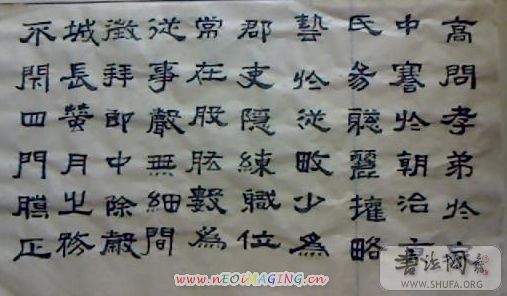 高問孝弟於家
中謇於朝治京
氏易聰麗權略
藝於從畋少為
郡吏隱練職位
常在股肱數為
從事聲無細間
徵拜郎中除穀
城長蠶月之務
不閉四門臘正
www.nEOiMAGING.cn
WWW.SHUFA.ORG